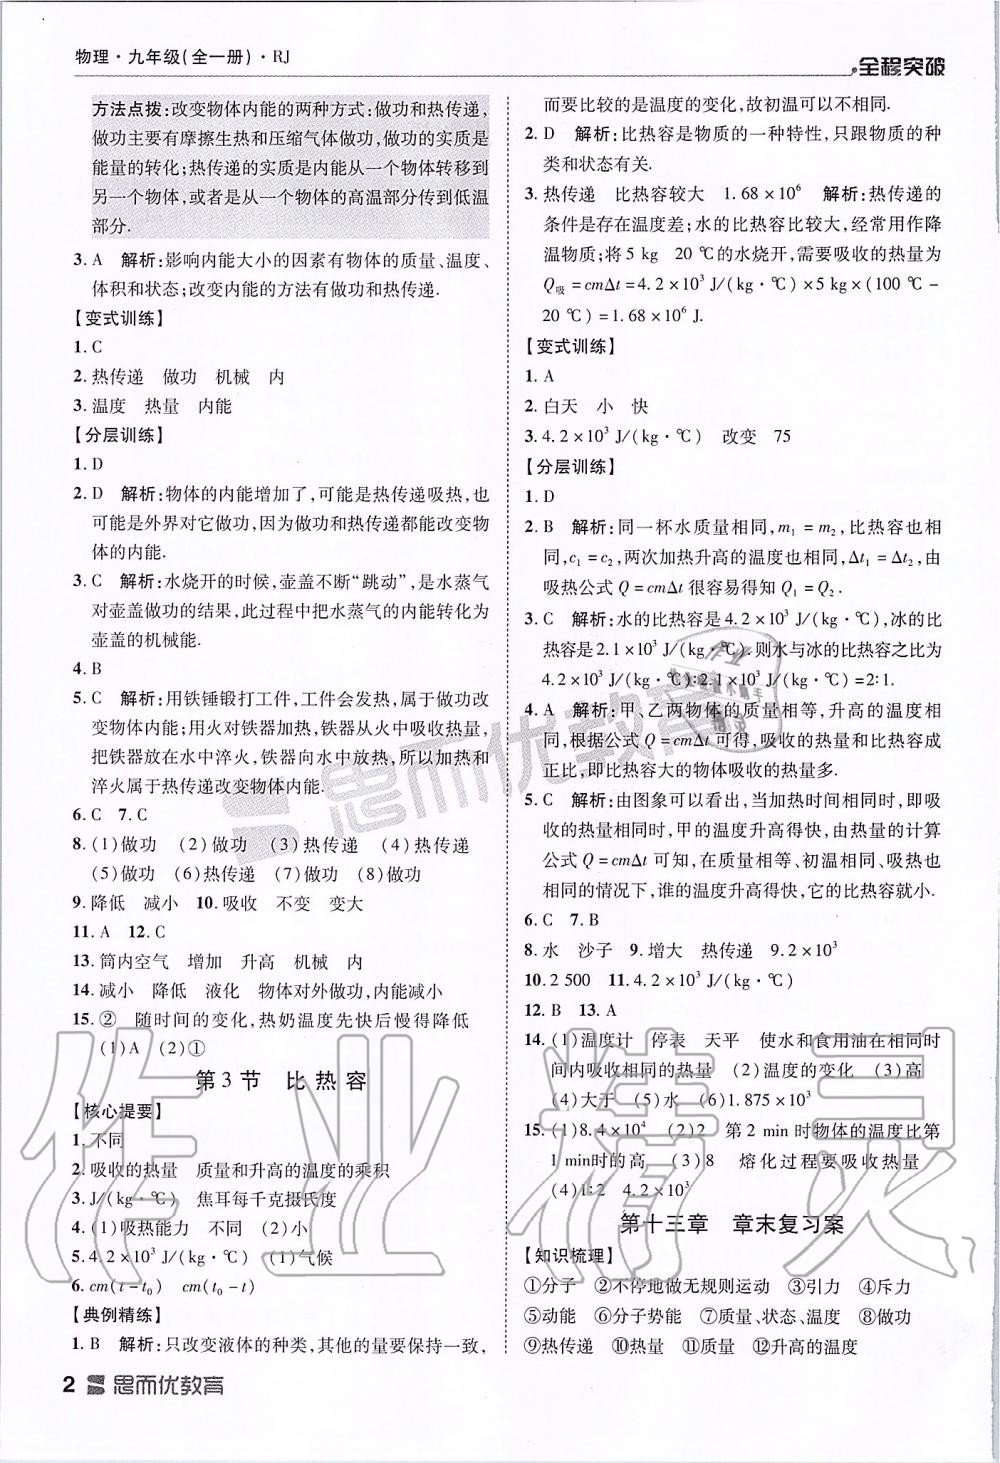 物理·九年级(全一册)·RJ
全程突破
方法点拨:改变物体内能的两种方式:做功和热传递,
做功主要有摩擦生热和压缩气体做功,做功的实质是
能量的转化;热传递的实质是内能从一个物体转移到
另一个物体,或者是从一个物体的高温部分传到低温
部分.
3. A 解析:影响内能大小的因素有物体的质量、温度、
体积和状态;改变内能的方法有做功和热传递.
【变式训练】
1. C
2. 热传递 做功 机械 内
3. 温度 热量 内能
【分层训练】
1. D
2. D 解析:物体的内能增加了,可能是热传递吸热,也
可能是外界对它做功,因为做功和热传递都能改变物
体的内能.
3. C 解析:水烧开的时候,壶盖不断“跳动”,是水蒸气
对壶盖做功的结果,此过程中把水蒸气的内能转化为
壶盖的机械能.
4. B
5. C 解析:用铁锤锻打工件,工件会发热,属于做功改
变物体内能;用火对铁器加热,铁器从火中吸收热量,
把铁器放在水中淬火,铁器向水中放热,所以加热和
淬火属于热传递改变物体内能.
6. C 7. C
8. (1)做功 (2)做功 (3)热传递 (4)热传递
(5)做功 (6)热传递 (7)做功 (8)做功
9. 降低 减小 10. 吸收 不变 变大
11. A 12. C
13. 筒内空气 增加 升高 机械 内
14. 减小 降低 液化 物体对外做功,内能减小
15. ② 随时间的变化,热奶温度先快后慢得降低
(1)A (2)①
第3节 比热容
【核心提要】
1. 不同
2. 吸收的热量 质量和升高的温度的乘积
3. J/(kg·℃) 焦耳每千克摄氏度
4. (1)吸热能力 不同 (2)小
5. 4.2×10³ J/(kg·℃) (1)气候
6. cm(t-t₀) cm(t₀-t)
【典例精练】
1. B 解析:只改变液体的种类,其他的量要保持一致,
而要比较的是温度的变化,故初温可以不相同.
2. D 解析:比热容是物质的一种特性,只跟物质的种
类和状态有关.
3. 热传递 比热容较大 1.68×10⁶ 解析:热传递的
条件是存在温度差;水的比热容比较大,经常用作降
温物质;将5 kg 20 ℃的水烧开,需要吸收的热量为
Q吸=cmΔt=4.2×10³ J/(kg·℃)×5 kg×(100 ℃-
20 ℃)=1.68×10⁶ J.
【变式训练】
1. A
2. 白天 小 快
3. 4.2×10³ J/(kg·℃) 改变 75
【分层训练】
1. D
2. B 解析:同一杯水质量相同,m₁=m₂,比热容也相
同,c₁=c₂,两次加热升高的温度也相同,Δt₁=Δt₂,由
吸热公式Q=cmΔt很容易得知Q₁=Q₂.
3. C 解析:水的比热容是4.2×10³ J/(kg·℃),冰的比
热容是2.1×10³ J/(kg·℃).则水与冰的比热容之比为
4.2×10³ J/(kg·℃):2.1×10³ J/(kg·℃)=2:1.
4. A 解析:甲、乙两物体的质量相等,升高的温度相
同,根据公式Q=cmΔt可得,吸收的热量和比热容成
正比,即比热容大的物体吸收的热量多.
5. C 解析:由图象可以看出,当加热时间相同,即吸
收的热量相同时,甲的温度升高得快,由热量的计算
公式Q=cmΔt可知,在质量相等、初温相同、吸热也
相同的情况下,谁的温度升高得快,它的比热容就小.
6. C 7. B
8. 水 沙子 9. 增大 热传递 9.2×10³
10. 2 500 11. 4.2×10³ J/(kg·℃)
12. B 13. A
14. (1)温度计 停表 天平 使水和食用油在相同时
间内吸收相同的热量 (2)温度的变化 (3)高
(4)大于 (5)水 (6)1.875×10³
15. (1)8.4×10⁴ (2)2 第2 min时物体的温度比第
1 min时的高 (3)8 熔化过程要吸收热量
(4)1:2 4.2×10³
第十三章 章末复习案
【知识梳理】
①分子 ②不停地做无规则运动 ③引力 ④斥力
⑤动能 ⑥分子势能 ⑦质量、状态、温度 ⑧做功
⑨热传递 ⑩热量 ⑪质量 ⑫升高的温度
2 思而优教育
思而优教育
作业精灵